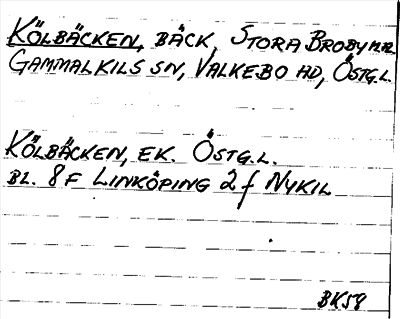 KÖLBÄCKEN, BÄCK, STORA BROBY MM
GAMMALKILS SN, VALKEBO HD, ÖSTG.L.
KÖLBÄCKEN, EK. ÖSTG.L.
BL. 8F LINKÖPING 2f NYKIL
BK58